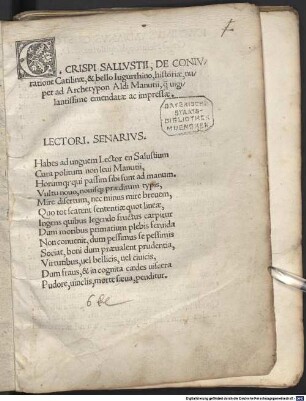 C. CRISPI SALLVSTII, DE CONIV-
ratione Catilinæ, & bello Iugurthino, historiæ, nu-
per ad Archetypon Aldi Manutii, q̃ uigi-
lantissime emendatæ ac impressæ.
BAYERISCHE
STAATS-
BIBLIOTHEK
MUENCHEN
LECTORI, SENARIVS.
Habes ad unguem Lector en Salustium
Cura politum non leui Manuti,
Horumq; qui passim sibi sunt ad manum.
Vultu nouo, nouisq; præditum typis,
Mire disertum, nec minus mire breuem,
Quo tot scatent sententiæ quot lineæ,
Ingens quibus legendo fructus carpitur
Dum moribus primatium plebis
Non conuenit, dum pessimus se pessimis
Sociat, boni dum præualent prudentia,
Virtutibus, uel bellicis, uel ciuicis,
Dum fraus, & incognita cædes uiscera
Pudore, uinclis, morte sæua, penditur.